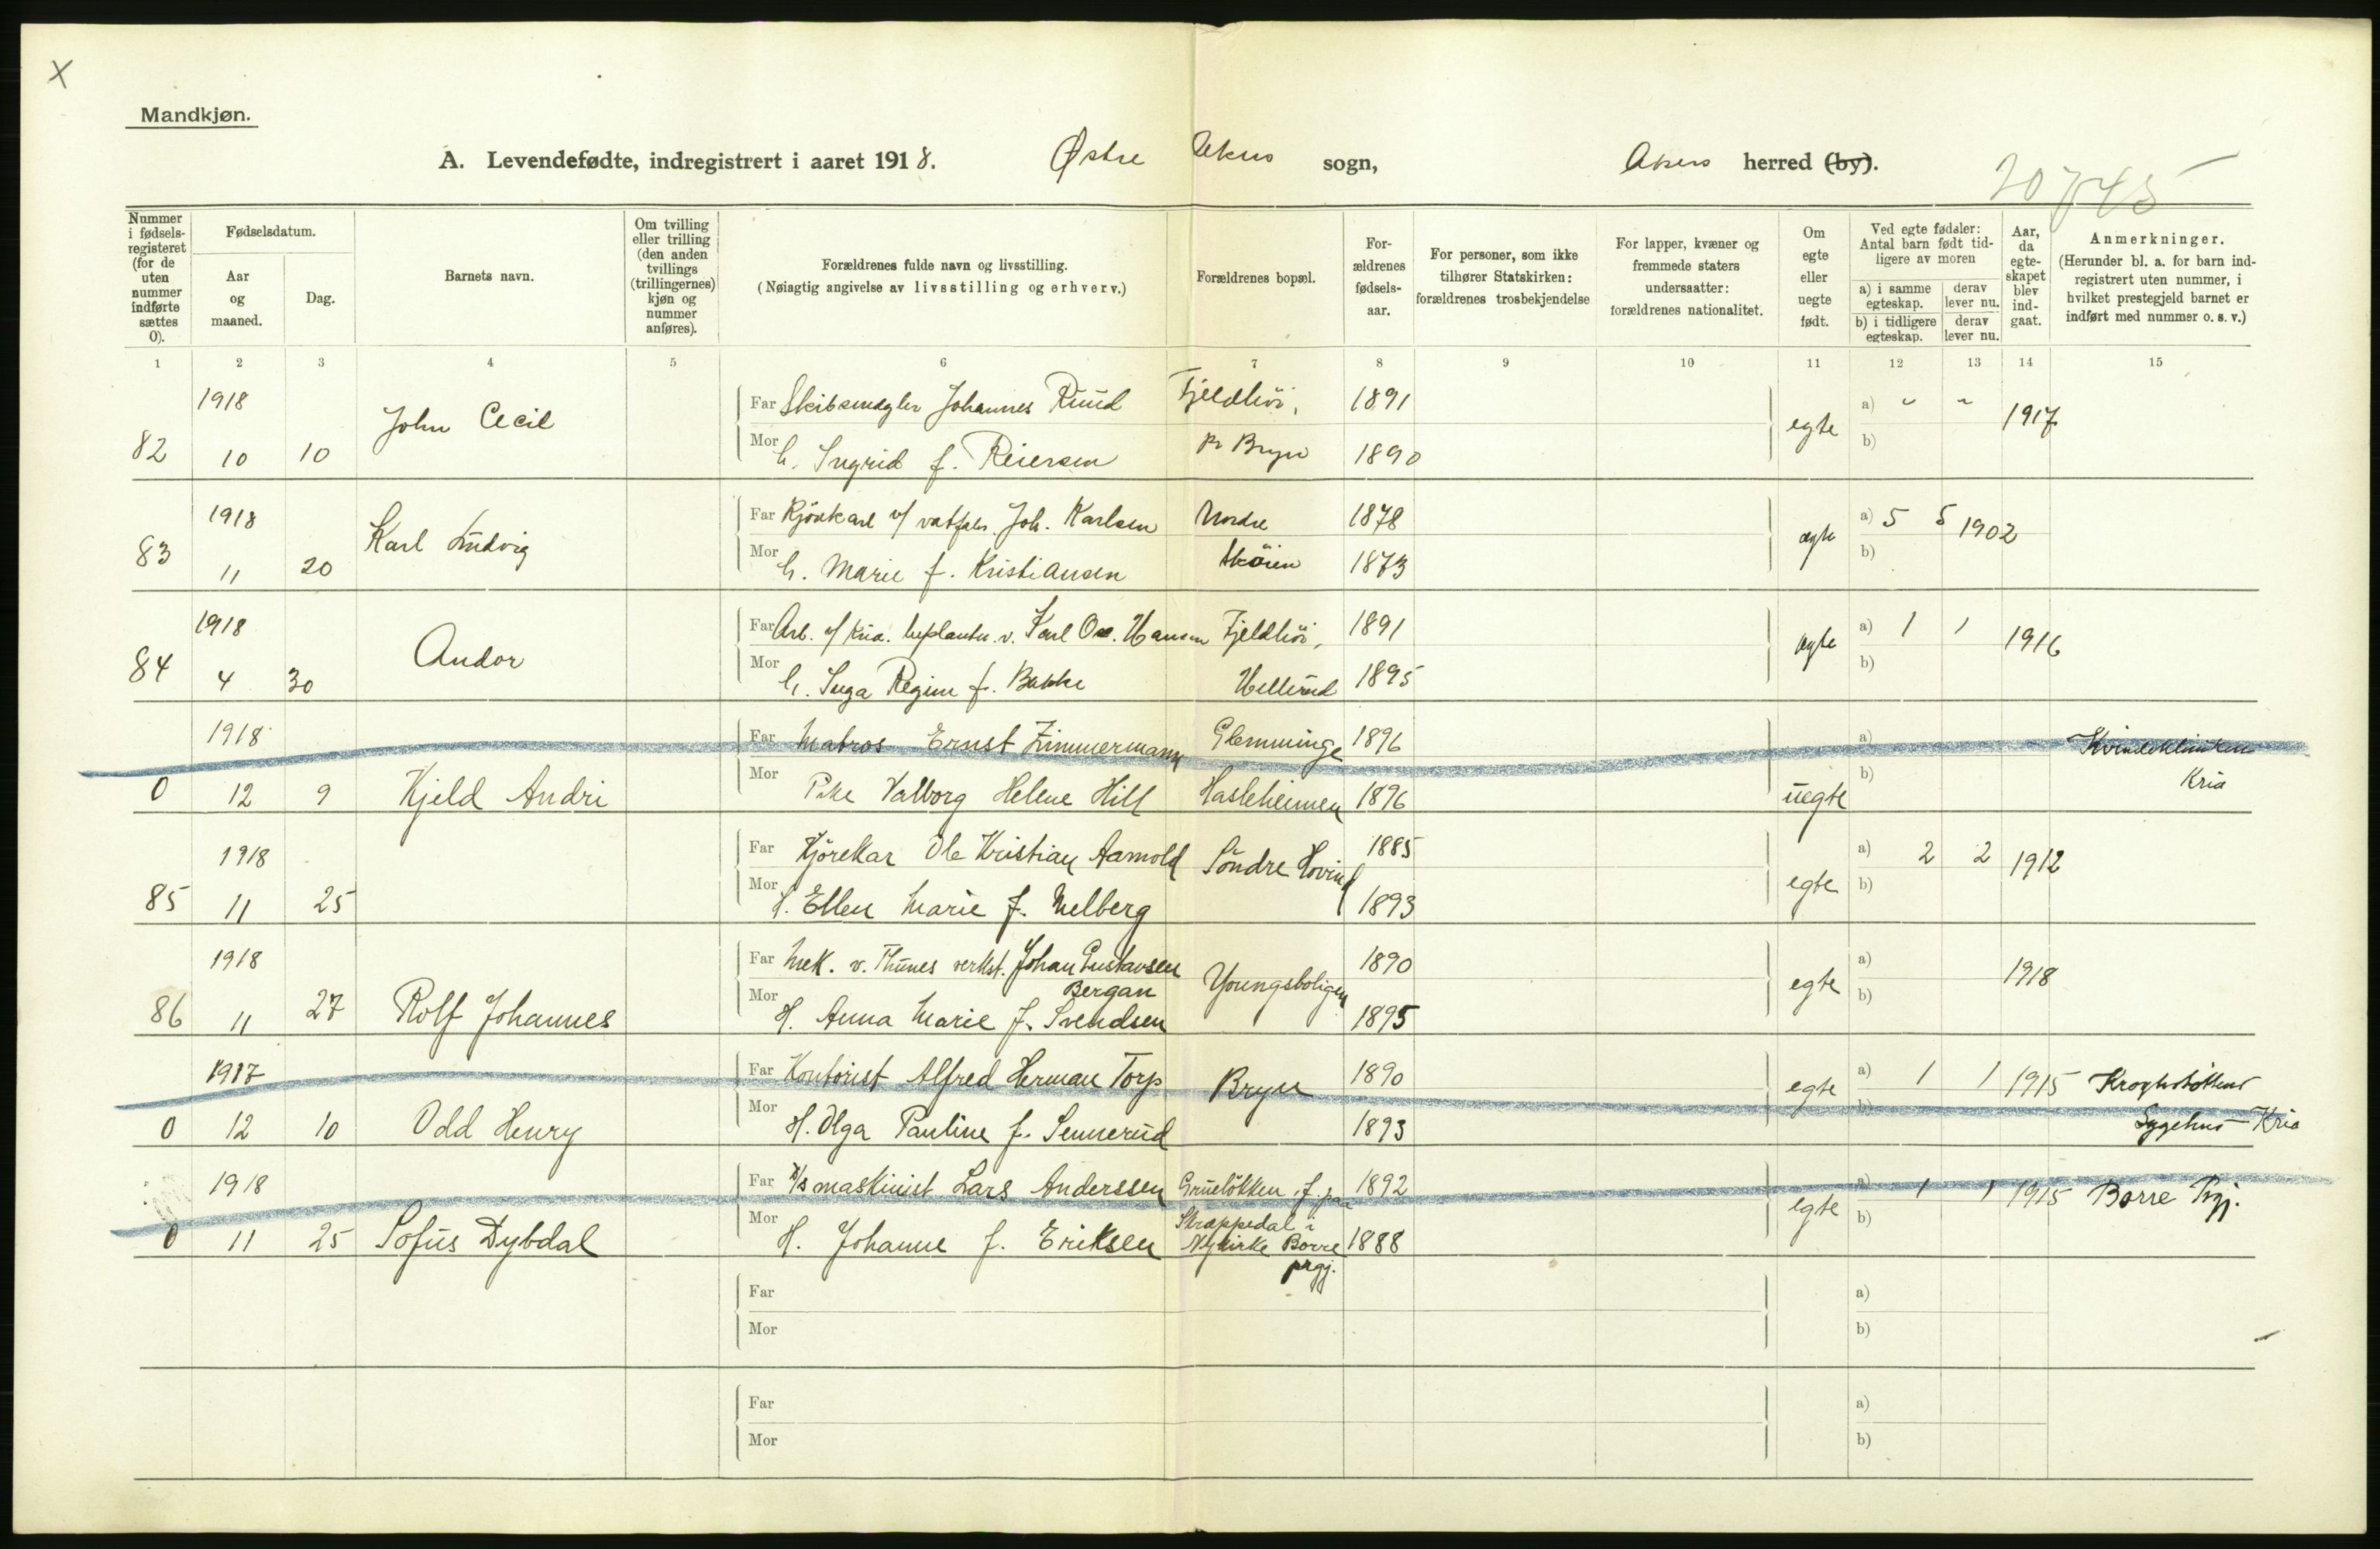 X
Mandkjøn.
A. Levendefødte, indregistrert i aaret 1918. Østre Akers sogn, Akers herred (by).
20745
Nummer i fødsels-registeret (for de uten nummer indførte sættes 0).
Fødselsdatum.
Aar og maaned.
Dag.
Barnets navn.
Om tvilling eller trilling (den anden tvillings (trillingernes) kjøn og nummer anføres).
Forældrenes fulde navn og livsstilling.
(Nøiagtig angivelse av livsstilling og erhverv.)
Forældrenes bopæl.
For-ældrenes fødsels-aar.
For personer, som ikke tilhører Statskirken: forældrenes trosbekjendelse
For lapper, kvæner og fremmede staters undersaatter: forældrenes nationalitet.
Om egte eller uegte født.
Ved egte fødsler: Antal barn født tid-ligere av moren
a) i samme egteskap.
derav lever nu.
b) i tidligere egteskap.
derav lever nu.
Aar, da egte-skapet blev ind-gaat.
Anmerkninger.
(Herunder bl. a. for barn ind-registrert uten nummer, i hvilket prestegjeld barnet er indført med nummer o. s. v.)
1 2 3 4 5 6 7 8 9 10 11 12 13 14 15
1918 Far Skibsmegler Johannes Ruud Fjeldhöi, 1891 a) " "
82 10 10 John Cecil Mor h. Ingrid f. Reiersen pr Bryn 1890 egte b) 1917
1918 Far Kjörekarl v/ Joh. Karlsen Nordre 1878 a) 5 5 1902
83 11 20 Karl Ludvig Mor h. Marie f. Kristiansen Sköien 1873 egte b)
1918 Far Arb. v/ Kria. beplantn. v. Karl Osc. Hansen Fjeldhöi, 1891 a) 1 1 1916
84 4 30 Andor Mor h. Inga Regine f. Bakke Hellerud 1895 egte b)
1918 Far Matros Ernst Zimmermann Glemminge 1896 a) Kvindeklinikken
0 12 9 Kjeld Andri Mor Pike Valborg Helene Hill Hasleheimen 1896 uegte b) Kria
1918 Far Kjörekar Ole Kristian Aamold Söndre Hovind 1885 a) 2 2 1912
85 11 25 Mor H. Ellen Marie f. Melberg 1893 egte b)
1918 Far Mek. v. Thunes verkst. Johan Gustavsen Bergan Youngsboligen 1890 a) 1918
86 11 27 Rolf Johannes Mor H. Anna Marie f. Svendsen 1895 egte b)
1917 Far Kontorist Alfred Herman Torp Bryn 1890 egte a) 1 1 1915 Kroghstöttens
0 12 10 Odd Henry Mor H. Olga Pauline f. Sennerud 1893 b) Sygehus Kria
1918 Far D/s maskinist Lars Anderssen Gruelökken, f. paa 1892 a) 1 1 1915 Borre Prgj.
0 11 25 Sofus Dybdal Mor H. Johanne f. Eriksen Skrappedal i Nykirke Borre prgj. 1888 egte b)
Far a)
Mor b)
Far a)
Mor b)